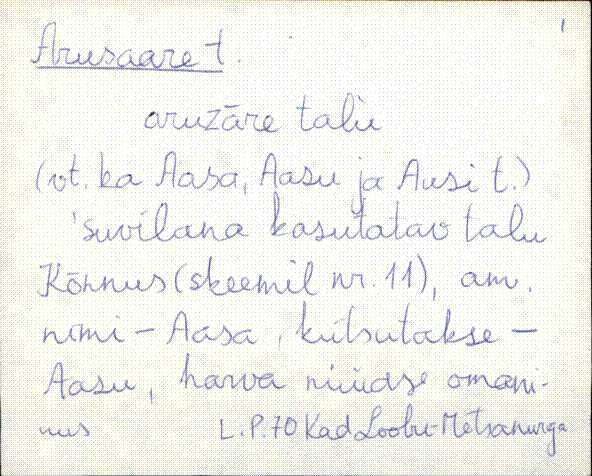 1
Arusaare t.
aruzāre talu
(vt. ka Aasa, Aasu ja Ausi t.)
'suvilana kasutatav talu
Kõnnus (skeemil nr. 11), am.
nimi - Aasa, kutsutakse -
Aasu, harva nüüdse omani-
L.P.70 Kad Loobu-Metsanurga